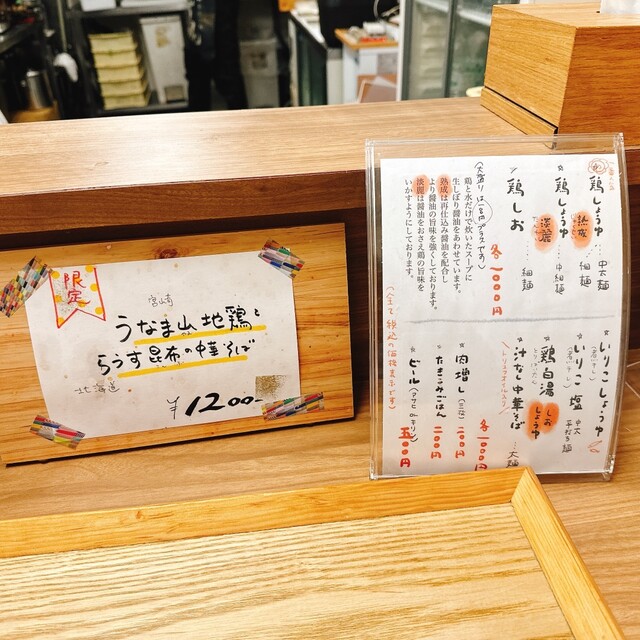 限定
宮崎
うなま山地鶏と
らうす昆布の中華そば
北海道
¥1200-
☆鶏しょうゆ 熟成 … 中太麺 細麺
☆鶏しょうゆ 淡麗 … 中細麺
鶏しお … 細麺
各1000円
(大盛りは 円プラスです)
鶏と水だけで炊いたスープに
生しぼり醤油をあわせています。
熟成は再仕込み醤油を配合し
より醤油の旨味を強くしております。
淡麗は醤油をおさえ鶏の旨味を
いかすようにしております。
☆いりこしょうゆ
☆いりこ塩 中太 平打ち麺
鶏白湯 しお しょうゆ
☆汁なし中華そば … 太麺
各1000円
肉増し 200円
たまごごはん 200円
ビール(アサヒ or キリン) 500円
(全て税込の価格表示です)